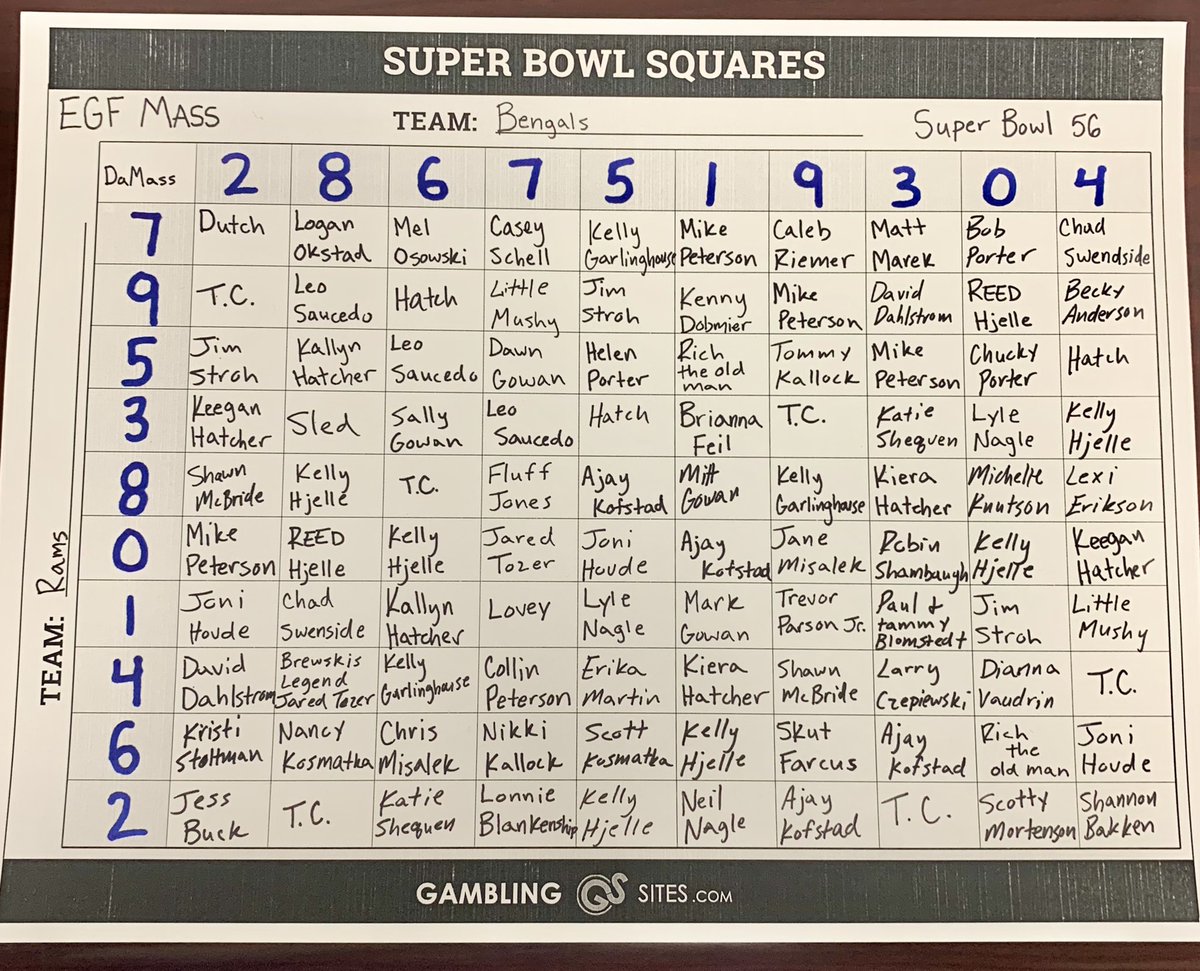 SUPER BOWL SQUARES
EGF MASS TEAM: Bengals Super Bowl 56
DaMass 2 8 6 7 5 1 9 3 0 4
TEAM: Rams
7 Dutch Logan Okstad Mel Osowski Casey Schell Kelly Garlinghouse Mike Peterson Caleb Riemer Matt Marek Bob Porter Chad Swendside
9 T.C. Leo Saucedo Hatch Little Mushy Jim Stroh Kenny Dobmier Mike Peterson David Dahlstrom REED Hjelle Becky Anderson
5 Jim Stroh Kallyn Hatcher Leo Saucedo Dawn Gowan Helen Porter Rich the old man Tommy Kallock Mike Peterson Chucky Porter Hatch
3 Keegan Hatcher Sled Sally Gowan Leo Saucedo Hatch Brianna Feil T.C. Katie Shequen Lyle Nagle Kelly Hjelle
8 Shawn McBride Kelly Hjelle T.C. Fluff Jones Ajay Kofstad Mitt Gowan Kelly Garlinghouse Kiera Hatcher Michelle Knutson Lexi Erikson
0 Mike Peterson REED Hjelle Kelly Hjelle Jared Tozer Joni Houde Ajay Kofstad Jane Misalek Robin Shambaugh Kelly Hjelle Keegan Hatcher
1 Joni Houde Chad Swenside Kallyn Hatcher Lovey Lyle Nagle Mark Gowan Trevor Parson Jr. Paul & tammy Blomstedt Jim Stroh Little Mushy
4 David Dahlstrom Brewskis Legend Jared Tozer Kelly Garlinghouse Collin Peterson Erika Martin Kiera Hatcher Shawn McBride Larry Czepiewski Dianna Vaudrin T.C.
6 Kristi Stoltman Nancy Kosmatka Chris Misalek Nikki Kallock Scott Kosmatka Kelly Hjelle Skut Farcus Ajay Kofstad Rich the old man Joni Houde
2 Jess Buck T.C. Katie Shequen Lonnie Blankenship Kelly Hjelle Neil Nagle Ajay Kofstad T.C. Scotty Mortenson Shannon Bakken
GAMBLING GS SITES.COM